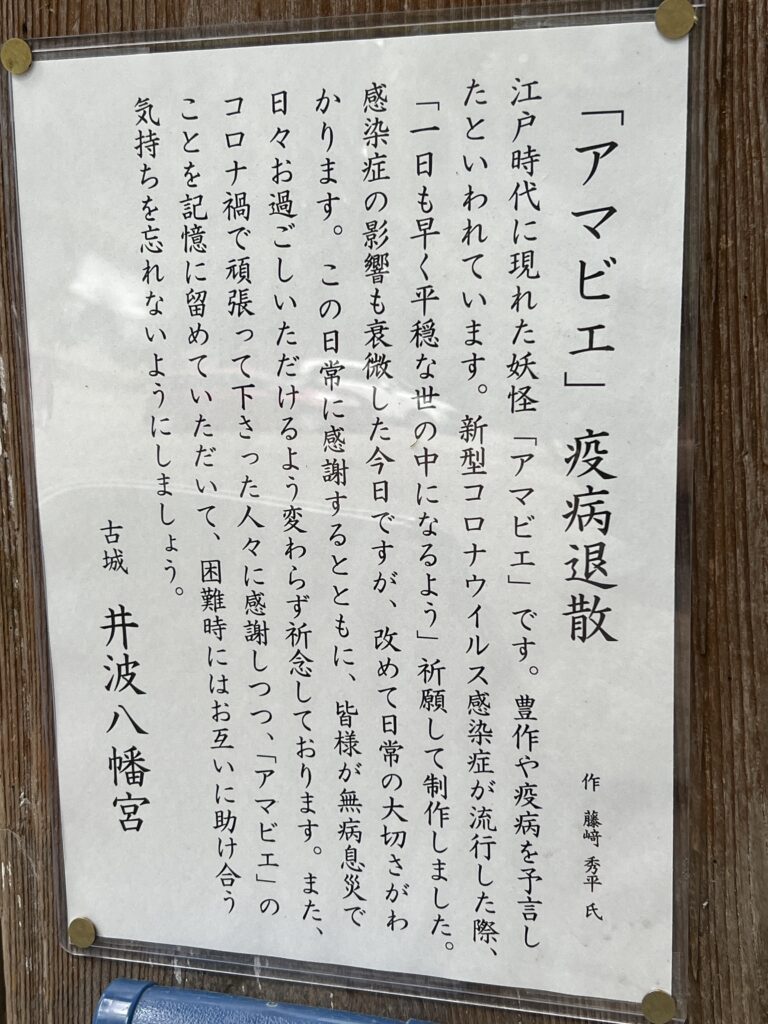 「アマビエ」疫病退散
作 藤﨑 秀平 氏
江戸時代に現れた妖怪「アマビエ」です。豊作や疫病を予言し
たといわれています。新型コロナウイルス感染症が流行した際、
「一日も早く平穏な世の中になるよう」祈願して制作しました。
感染症の影響も衰微した今日ですが、改めて日常の大切さがわ
かります。この日常に感謝するとともに、皆様が無病息災で
日々お過ごしいただけるよう変わらず祈念しております。また、
コロナ禍で頑張って下さった人々に感謝しつつ、「アマビエ」の
ことを記憶に留めていただいて、困難時にはお互いに助け合う
気持ちを忘れないようにしましょう。
古城 井波八幡宮